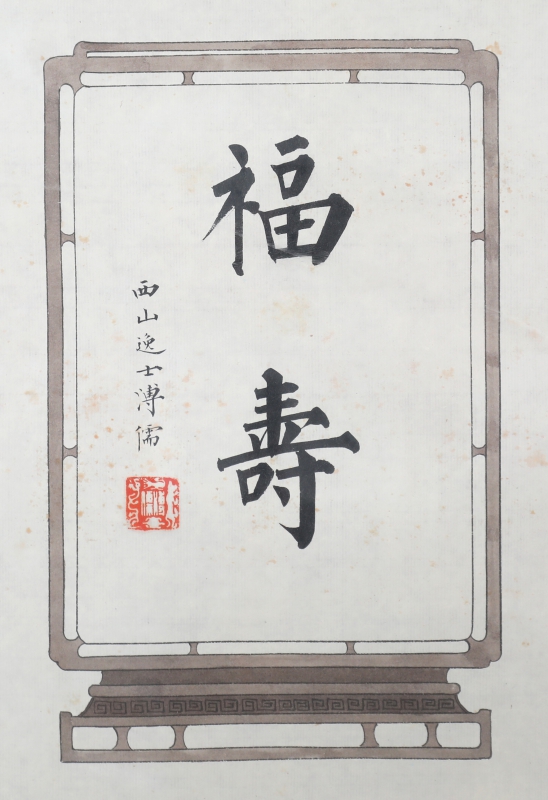 福壽
西山逸士溥儒